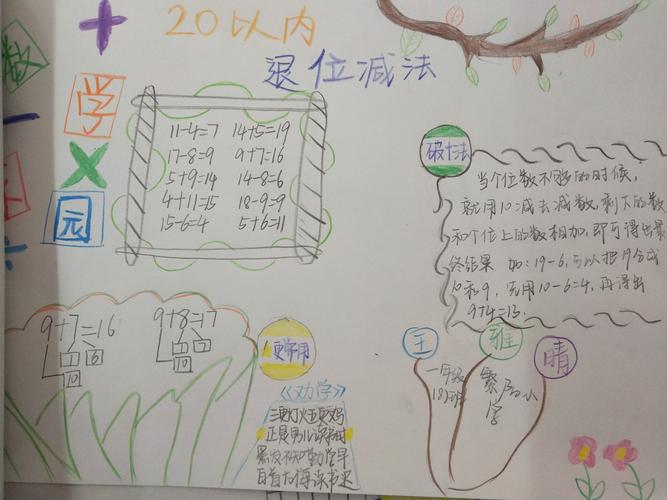 20以内
退位减法
数
学
园
11-4=7 14+5=19
17-8=9 9+7=16
5+9=14 14-8=6
4+11=15 18-9=9
15-6=4 5+6=11
破十法
当个位数不够的时候,
就用10减去减数,剩下的数
和个位上的数相加,即可得出最
终结果 如:19-6,可以把19分成
10和9,先用10-6=4,再得出
9+4=13.
9+7=16
1 6
10
9+8=17
1 7
10
王
雅
晴
一年级
18班
小
学
《劝学》
三更灯火五更鸡
正是男儿读书时
黑发不知勤学早
白首方悔读书迟